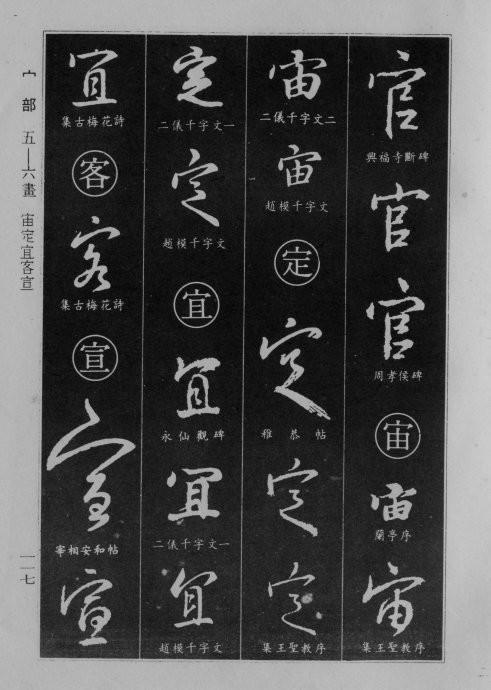 宀部 五—六畫 宙定宜客宣
一一七
官
興福寺斷碑
官
官
周孝侯碑
宙
宙
蘭亭序
宙
集王聖教序
宙
二儀千字文二
宙
趙模千字文
定
定
雅恭帖
定
定
集王聖教序
定
二儀千字文一
定
趙模千字文
宜
宜
永仙觀碑
宜
二儀千字文一
宜
趙模千字文
宜
集古梅花詩
客
客
集古梅花詩
宣
宣
寧相安和帖
宣